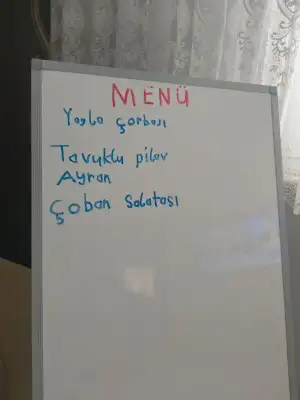 MENÜ
Yayla çorbası
Tavuklu pilav
Ayran
Çoban Salatası